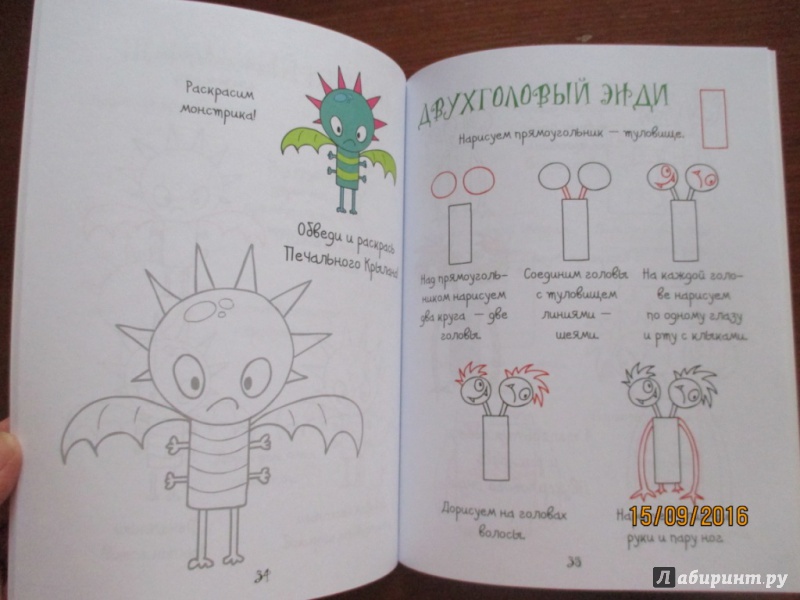 Раскрасим
монстрика!
Обведи и раскрась
Печального Крылана!
34
ДВУХГОЛОВЫЙ ЭНДИ
Нарисуем прямоугольник — туловище.
Над прямоуголь-
ником нарисуем
два круга — две
головы.
Соединим головы
с туловищем
линиями —
шеями.
На каждой голо-
ве нарисуем
по одному глазу
и рту с клыками.
Дорисуем на головах
волосы.
руки и пару ног.
35
15/09/2016
Лабиринт.ру